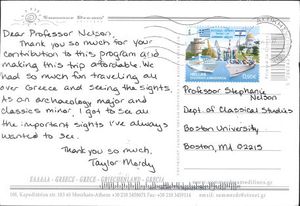 Summer Dreams
Dear Professor Nelson,
Thank you so much for your
contribution to this program and
making this trip affordable. We
had so much fun traveling all
over Greece and seeing the sights.
As an archaeology major and
classics minor, I got to see all
the important sights I've always
wanted to see.
Thank you so much,
Taylor Mardy
HELLAS
0,90€
Professor Stephanie
Nelson
Dept of Classical Studies
Boston University
Boston, MD 02215
ΕΛΛΑΔΑ - GREECE - GRÈCE - GRIECHENLAND - GRECIA